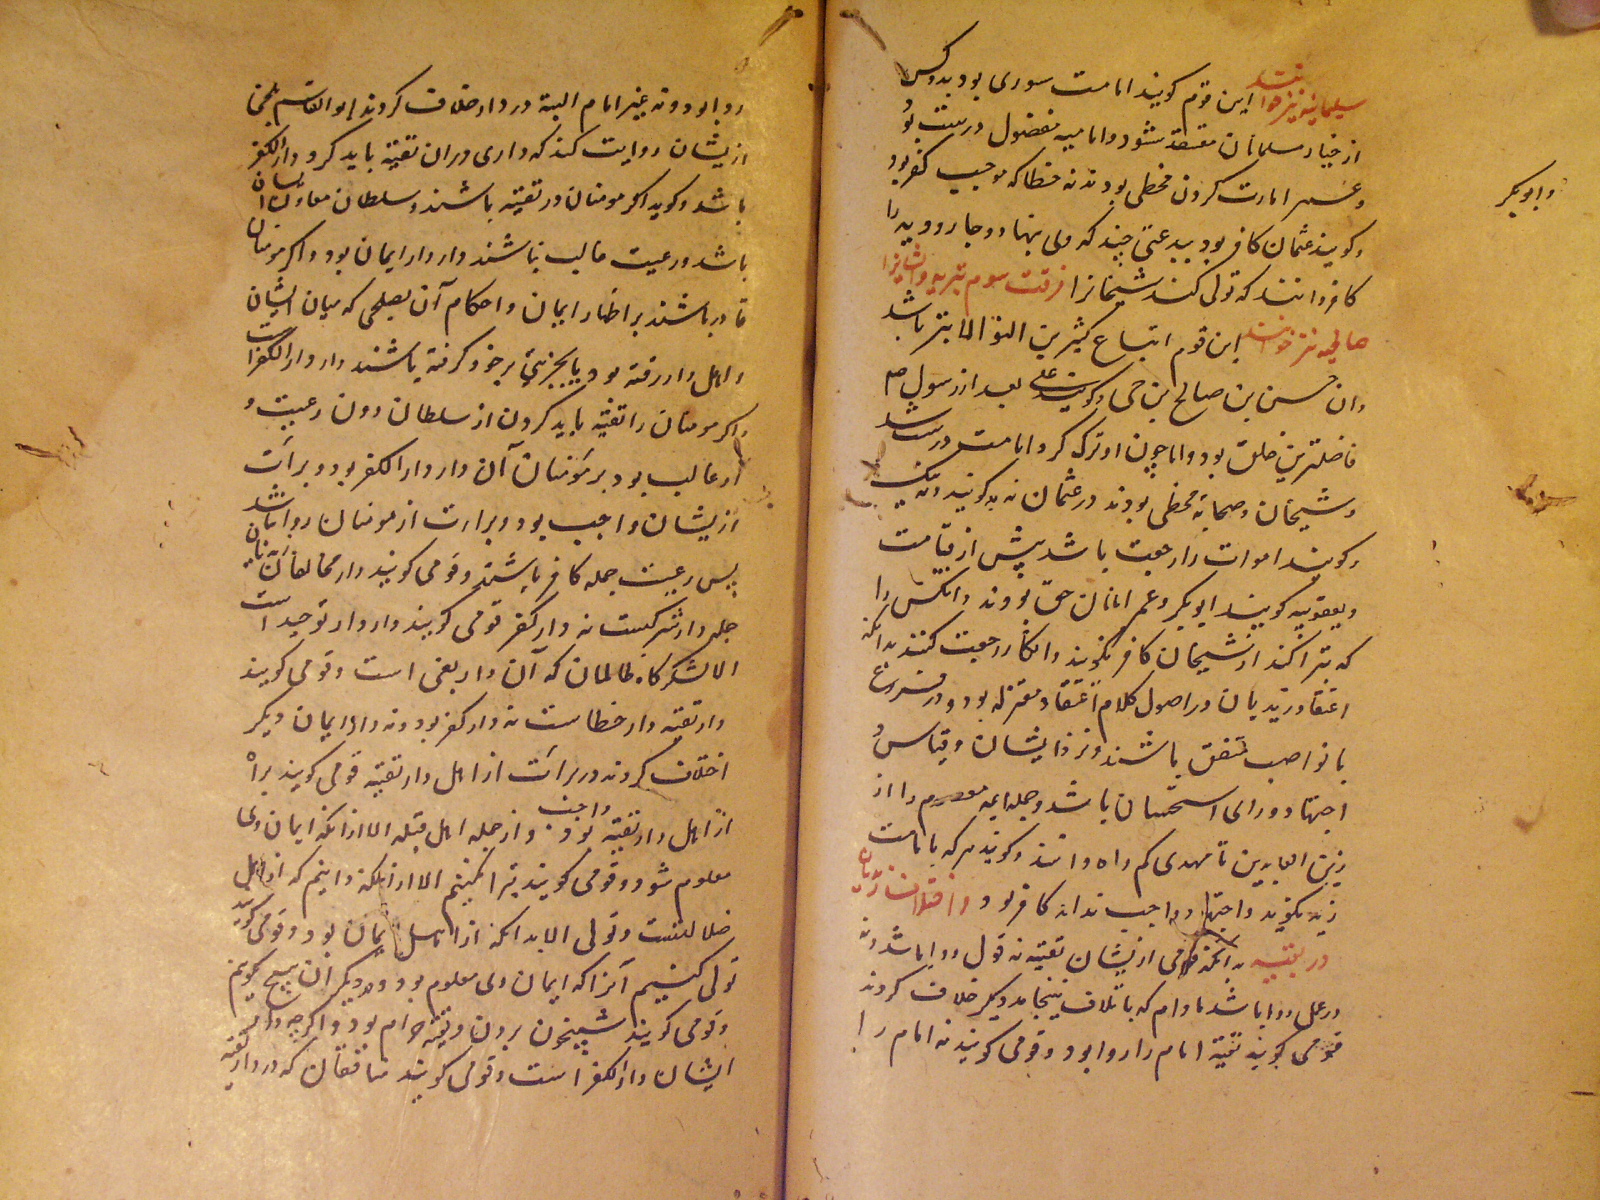 سلیمانیه نیز خوانند این قوم کویند امامت سوری بود بدو کس
از خیار مسلمانان منعقد شود و امامیه مفضول درست بود
و عمر امارت کردن مخطی بودند نه خطا که موجب کفر بود
و ابو بکر
و کویند عثمان کافر بود ببدعتی چند که وی بنهاد و جارودیه را
کافر دانند که تولی کنند شیخانرا فرقت سوم بتریه و ایشانرا
صالحیه نیز خوانند این قوم اتباع کثیر بن النوا الابتر باشد
و ان حسن بن صالح بن حی و کویند علی بعد از رسول صم
فاضلترین خلق بود و اما چون او ترک کرد امامت درست شد
و شیخان و صحابه مخطی بودند در عثمان نه بد کویند و نه نیک
و کویند اموات را رجعت باشد پیش از قیامت
و یعقوبیه کویند ابو بکر و عمر امامان حق بودند و آنکس را
که تبرا کند از شیخان کافر نکویند و انکار رجعت کنند بدانکه
اعتقاد زیدیان در اصول کلام اعتقاد معتزله بود و در فروع
با نواصب متفق باشند و نزد ایشان و قیاس و
اجتهاد و رای استحسان باشد و جمله ایمه معصوم را از
زین العابدین تا مهدی کم راه دانند و کویند هر که بامامت
زید نکوید و اجتهاد واجب نداند کافر بود و اختلاف زیدیان
در تقیه بدانکه قومی از یشان تقیه نه قول روا باشد و نه
در عمل روا باشد مادام که باتلاف نینجامد و دیکر خلاف کردند
قومی کویند تقیه امام را روا بود و قومی کویند نه امام را
روا بود و نه غیر امام البته در دار خلاف کردند ابو القاسم بلخی
از یشان روایت کند که داری در آن تقیه باید کرد دار الکفر
باشد و کوید اکر مومنان در تقیه باشند و سلطان معاونشان
باشد و رعیت غالب باشند و ار دار ایمان بود و اکر مومنان
قادر باشند بر اظهار ایمان و احکام آن بصلحی که میان ایشان
و اهل دار رفته بود یا بجزیتی بر خود کرفته باشند دار دار الکفر است
و اکر مومنان را تقیه باید کردن از سلطان دون رعیت و
او غالب بود بر مومنان آن دار دار الکفر بود و برائت
از یشان واجب بود و برارت از مومنان روا باشد
پس رعیت جمله کافر باشند و قومی کویند دار مخالفان
جمله دار شرکست نه دار کفر قومی کویند دار دار توحید است
الا لشکرکاه ظالمان که آن دار بغی است و قومی کویند
دار تقیه دار خطاست نه دار کفر بود و نه دار ایمان دیکر
اختلاف کردند در برائت از اهل دار تقیه قومی کویند برأة
از اهل دار تقیه واجب بود و از جمله اهل قبله الا از آنکه ایمان وی
معلوم شود و قومی کویند تبرا نکنیم الا از آنکه دانیم که از اهل
ضلالتست و تولی الا بدانکه از اهل ایمان بود و قومی کویند
تولی کنیم آنرا که ایمان وی معلوم بود و در دیکران هیچ نکویم
و قومی کویند شبیخون بردن و تقیه حرام بود و اکر چه دار
ایشان دار الکفر است و قومی کویند منافقان که در دار تقیه